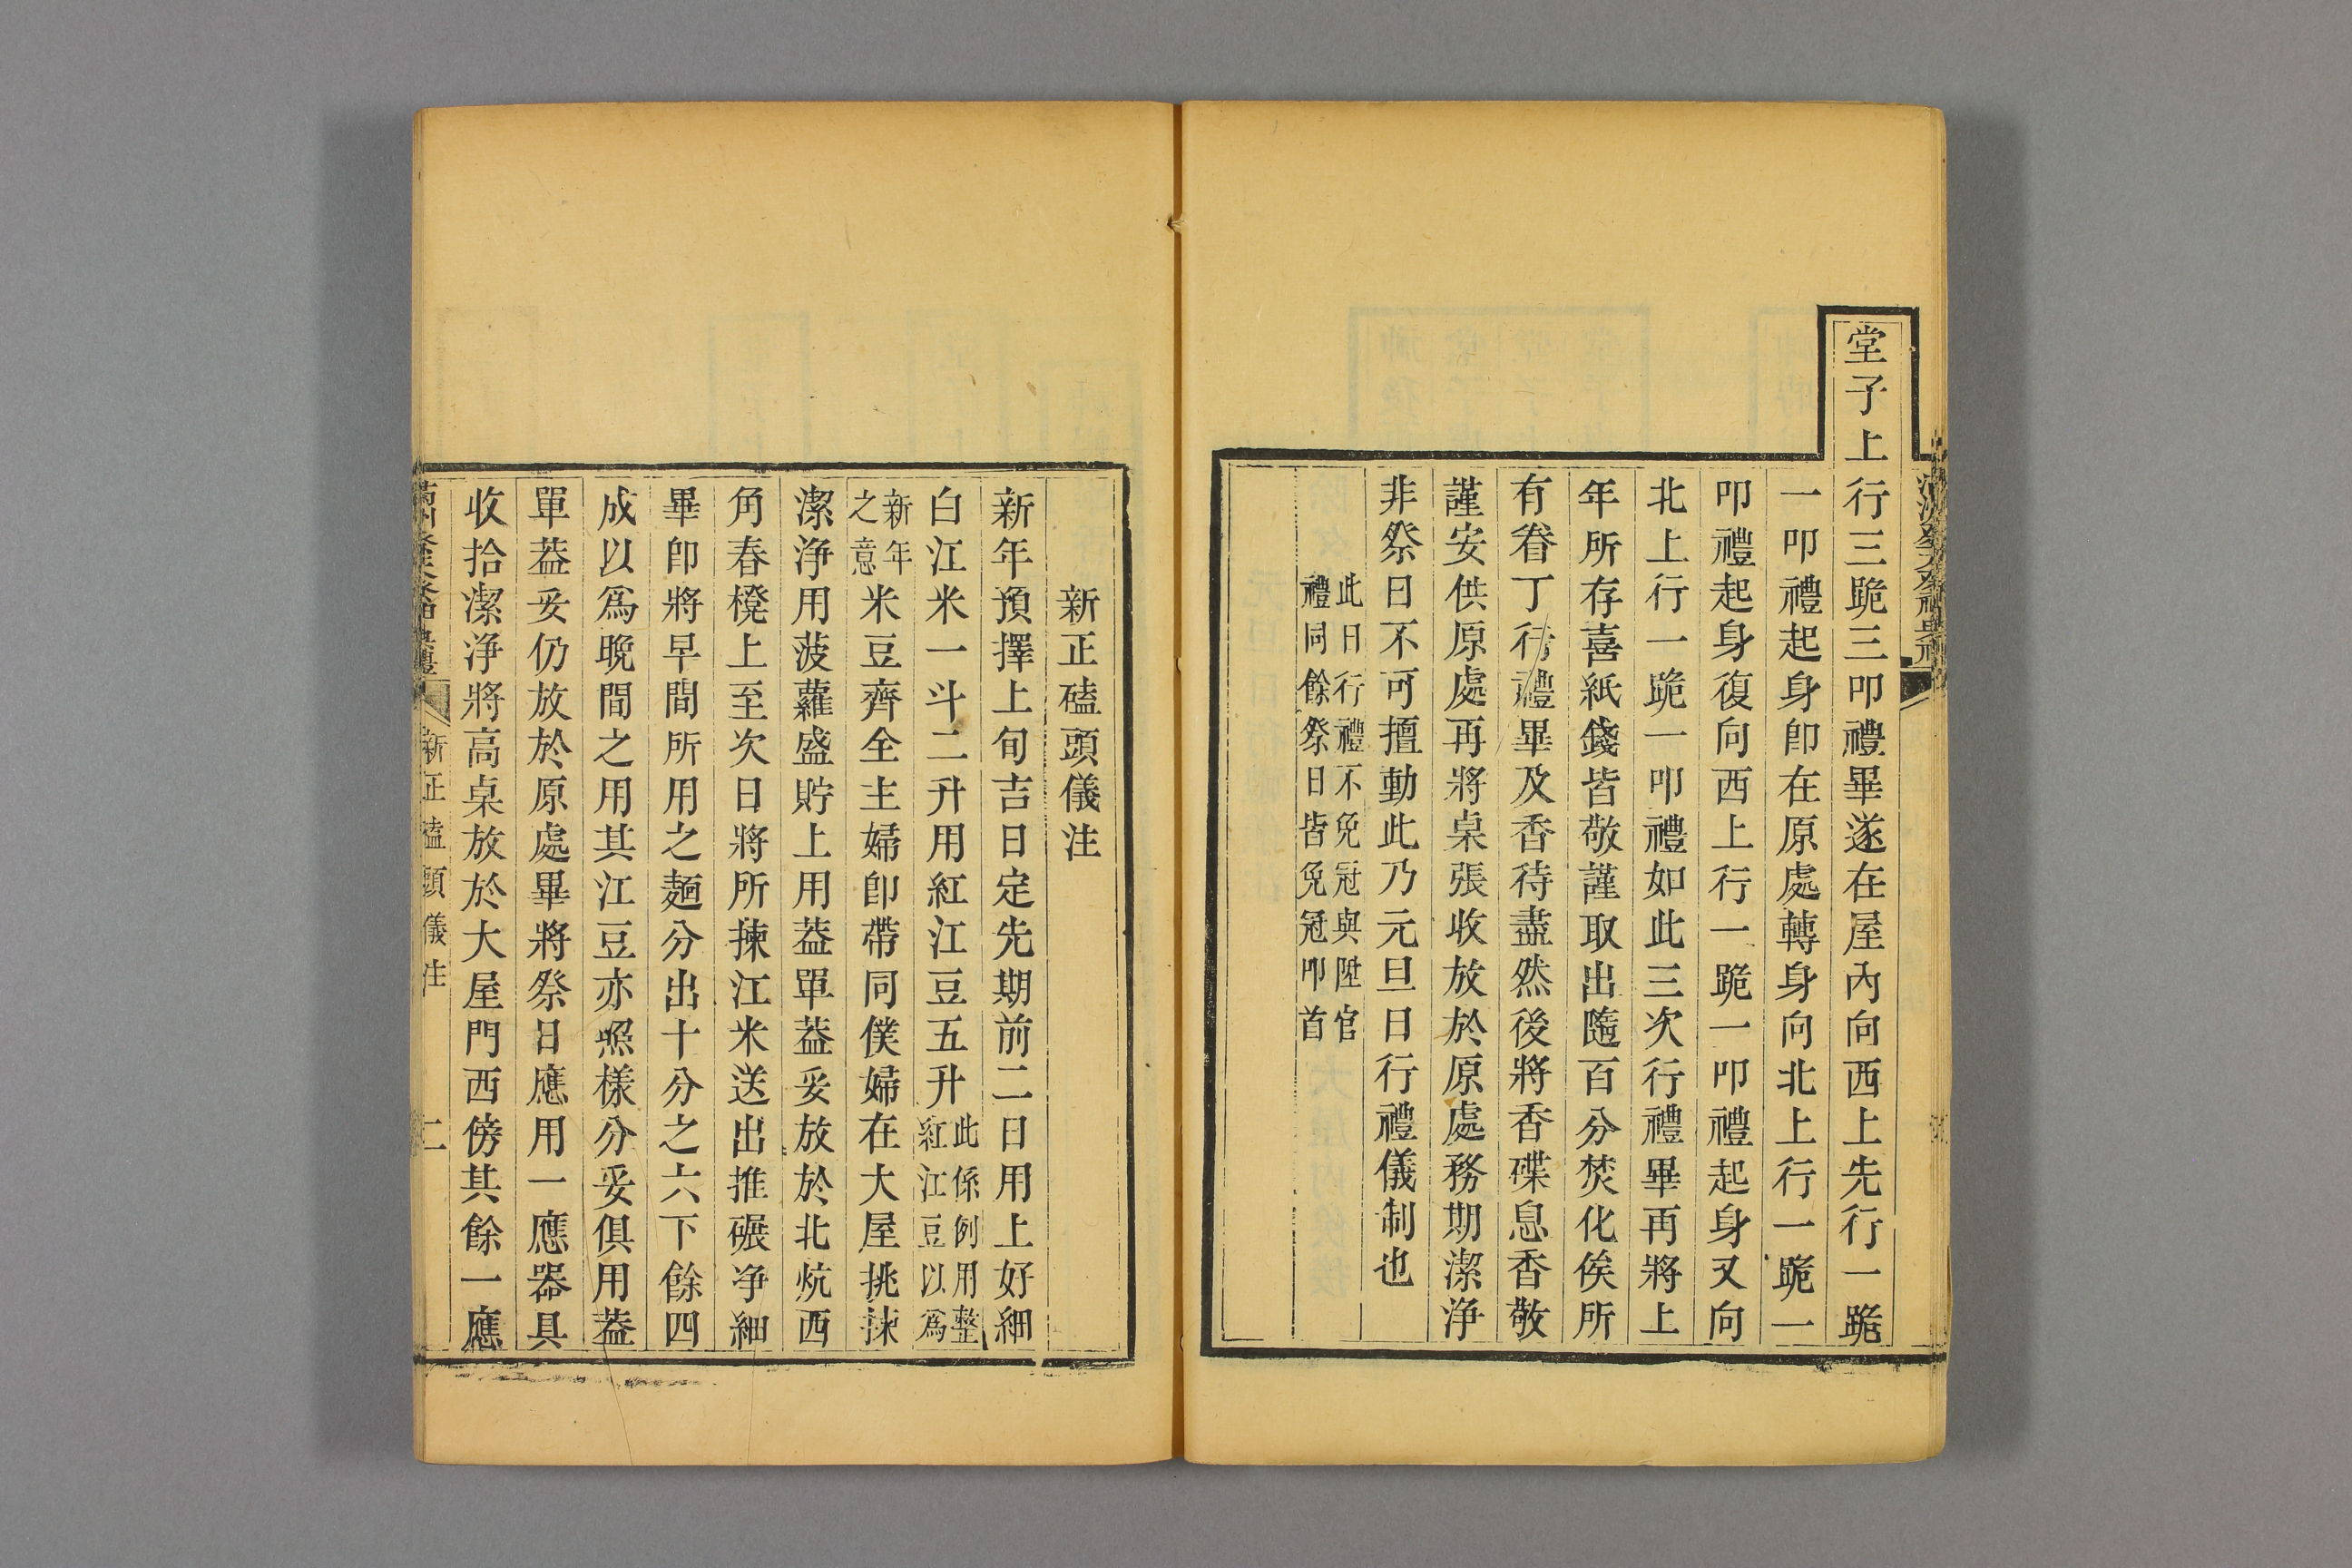 堂子上行三跪三叩禮畢遂在屋內向西上先行一跪
一叩禮起身卽在原處轉身向北上行一跪一
叩禮起身復向西上行一跪一叩禮起身又向
北上行一跪一叩禮如此三次行禮畢再將上
年所存喜紙錢皆敬謹取出隨百分焚化俟所
有眷丁行禮畢及香待盡然後將香碟息香敬
謹安供原處再將桌張收放於原處務期潔淨
非祭日不可擅動此乃元旦日行禮儀制也
此日行禮不免冠與陞官
禮同餘祭日皆免冠叩首
新正磕頭儀注
新年預擇上旬吉日定先期前二日用上好細
白江米一斗二升用紅江豆五升此係例用整紅江豆以爲
新年之意米豆齊全主婦卽帶同僕婦在大屋挑揀
潔淨用菠蘿盛貯上用葢單葢妥放於北炕西
角春櫈上至次日將所揀江米送出推碾净細
畢卽將早間所用之麺分出十分之六下餘四
成以爲晚間之用其江豆亦照樣分妥俱用葢
單葢妥仍放於原處畢將祭日應用一應器具
收拾潔淨將高桌放於大屋門西傍其餘一應
新正磕頭儀注 二